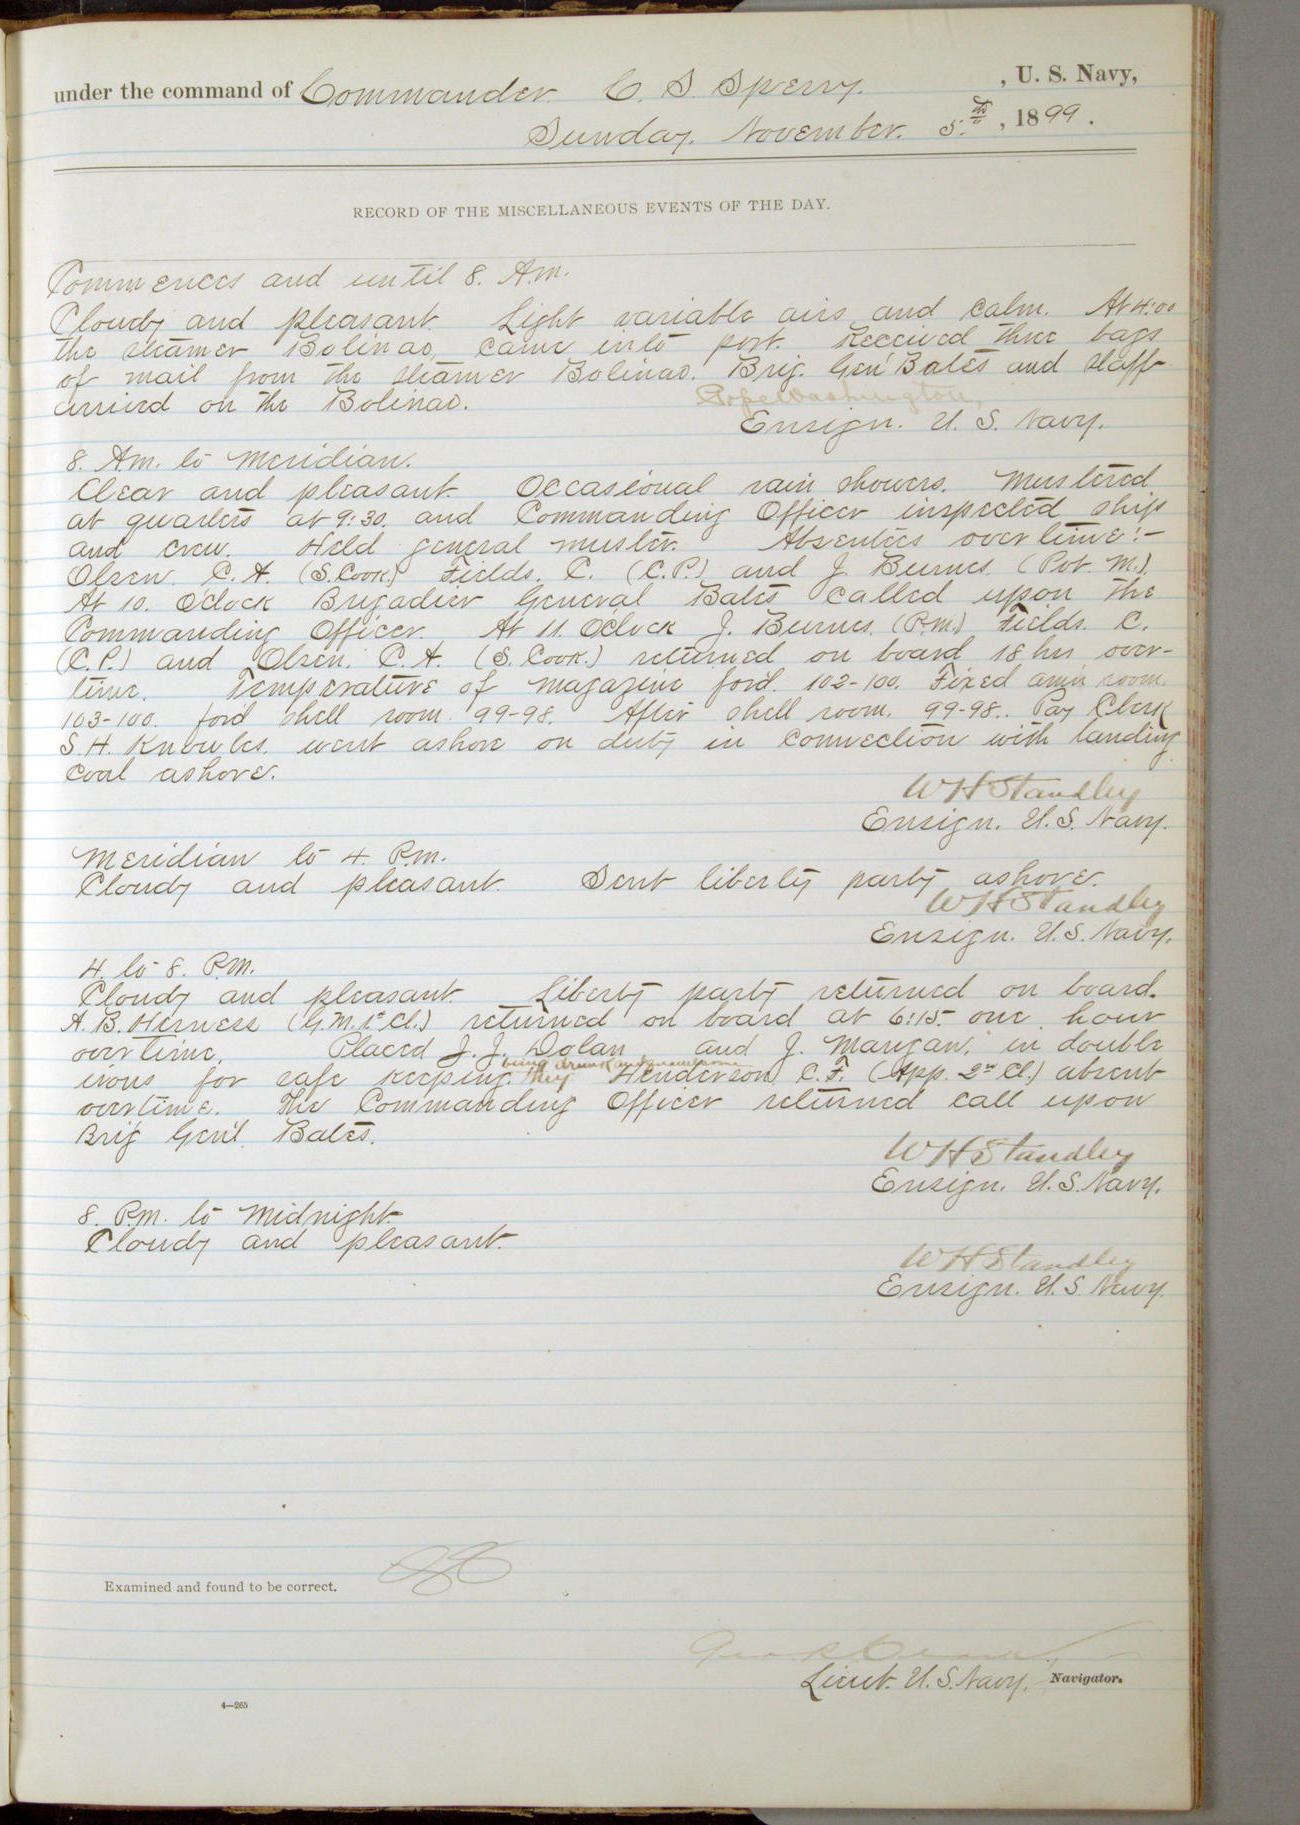 under the command of Commander C. S. Sperry. , U. S. Navy,
Sunday, November. 5.th , 1899.
RECORD OF THE MISCELLANEOUS EVENTS OF THE DAY.
Commences and until 8. A.m.
Cloudy and pleasant. Light variable airs and calm. At 4:00
the steamer Bolinao, came into port. Received three bags
of mail from the steamer Bolinao. Brig. Gen' Bates and staff
arrived on the Bolinao.
Pope Washington,
Ensign. U. S. Navy.
8. A.m. to Meridian.
Clear and pleasant. Occasional rain showers. Mustered
at quarters at 9:30. and Commanding Officer inspected ship
and crew. Held general muster. Absentees overtime:-
Olsen. C. A. (S. Cook.) Fields. C. (C.P.) and J. Burnes. (Pvt. M.).
At 10. O'clock Brigadier General Bates called upon the
Commanding Officer. At 11. O'clock J. Burnes. (P.m.) Fields. C.
(C.P.) and Olsen. C. A. (S. Cook.) returned on board 18 hrs over-
time. Temperature of magazine for'd. 102-100. Fixed amn room.
103-100. for'd shell room. 99-98. After shell room. 99-98.. Pay Clerk
S. H. Knowles. went ashore on duty in connection with landing
coal ashore.
W H Standley
Ensign. U. S. Navy.
Meridian to 4. P.m.
Cloudy and pleasant. Sent liberty party ashore.
W H Standley
Ensign. U. S. Navy.
4. to 8. P.M.
Cloudy and pleasant. Liberty party returned on board.
A. B. Herness (G.M. 1st Cl.) returned on board at 6:15. one hour
overtime. Placed J. J. Dolan and J. Mangan, in double
being drunk and
irons for safe keeping. they Henderson, C. F. (App. 2nd Cl.) absent
overtime. The Commanding Officer returned call upon
Brig Gen'l. Bates.
W H Standley
Ensign. U. S. Navy.
8. P.M. to Midnight.
Cloudy and pleasant.
W H Standley
Ensign. U. S. Navy.
Examined and found to be correct.
Lieut. U. S. Navy. Navigator.
4—265